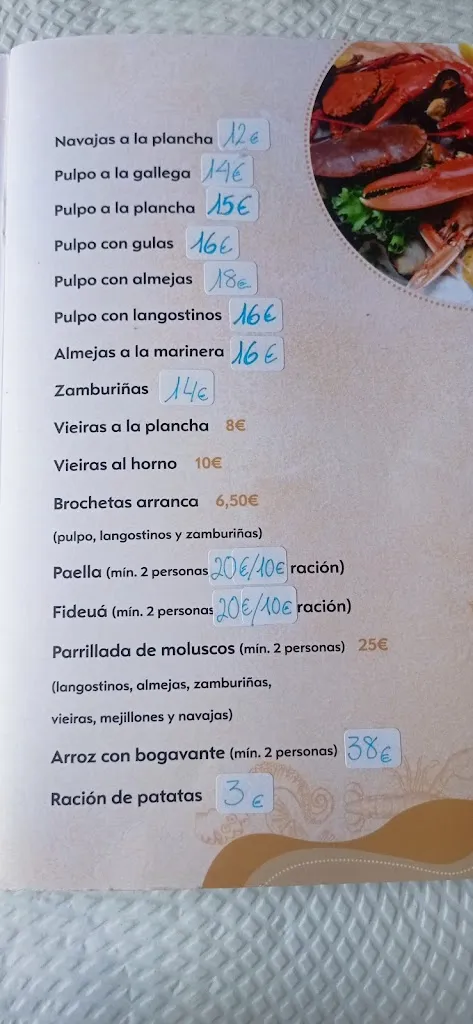 Navajas a la plancha 12€
Pulpo a la gallega 14€
Pulpo a la plancha 15€
Pulpo con gulas 16€
Pulpo con almejas 18€
Pulpo con langostinos 16€
Almejas a la marinera 16€
Zamburiñas 14€
Vieiras a la plancha 8€
Vieiras al horno 10€
Brochetas arranca 6,50€
(pulpo, langostinos y zamburiñas)
Paella (mín. 2 personas 20€/10€ ración)
Fideuá (mín. 2 personas 20€/10€ ración)
Parrillada de moluscos (mín. 2 personas) 25€
(langostinos, almejas, zamburiñas,
vieiras, mejillones y navajas)
Arroz con bogavante (mín. 2 personas) 38€
Ración de patatas 3€